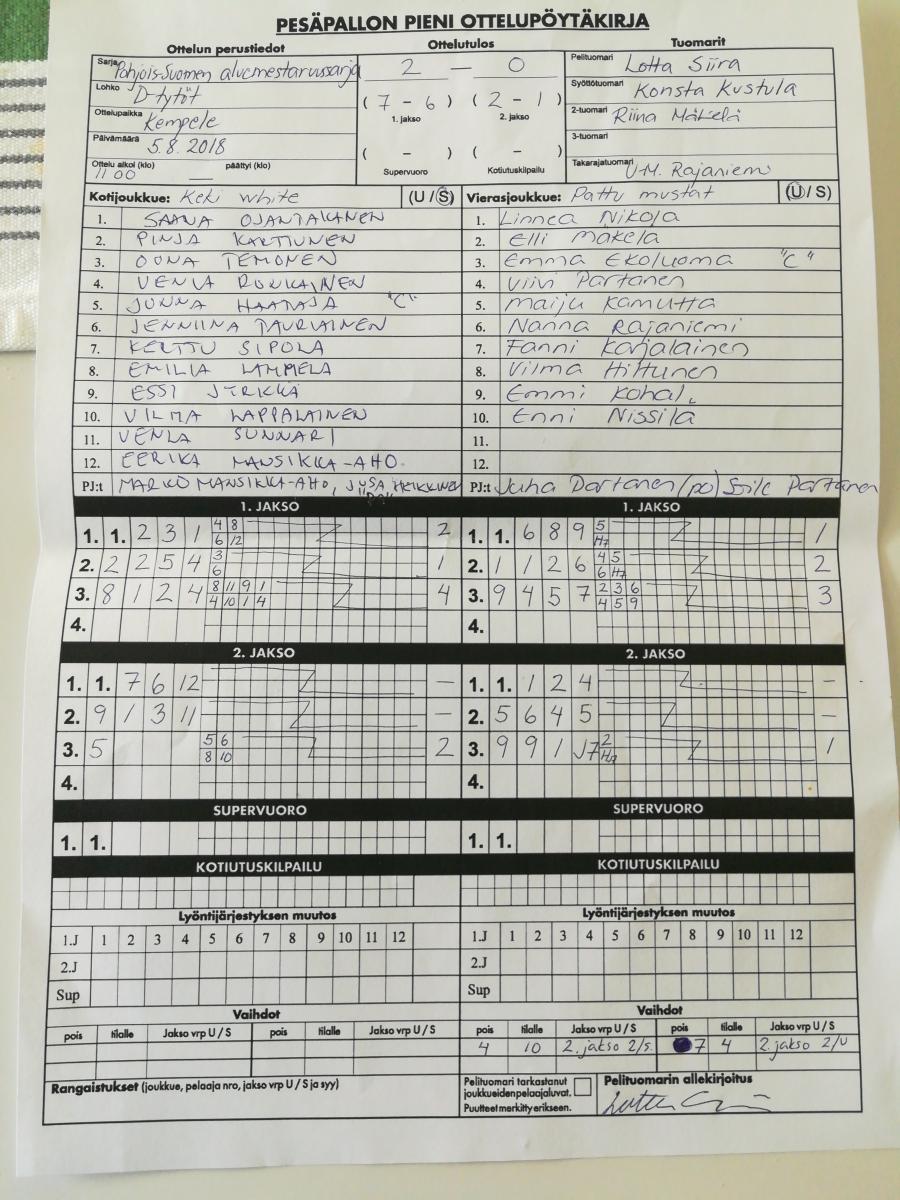 PESÄPALLON PIENI OTTELUPÖYTÄKIRJA
Ottelun perustiedot Ottelutulos Tuomarit
Sarja Pohjois-Suomen aluemestaruussarja
Lohko D-tytöt
Ottelupaikka Kempele
Päivämäärä 5.8.2018
Ottelu alkoi (klo) 11 00 päättyi (klo) —
2 — 0
( 7 - 6 ) ( 2 - 1 )
1. jakso 2. jakso
( - ) ( - )
Supervuoro Kotiutuskilpailu
Pelituomari Lotta Siira
Syöttötuomari Konsta Kustula
2-tuomari Riina Mäkelä
3-tuomari
Takarajatuomari U-M. Rajaniemi
Kotijoukkue: Keki white (U / S)
1. SAANA OJANTAKANEN
2. PINJA KARTIUNEN
3. OONA TEMONEN
4. VENLA RONKAINEN
5. JONNA HAATAJA "C"
6. JENNIINA TAURIAINEN
7. KERTTU SIPOLA
8. EMILIA LAMMELA
9. ESSI JYRKKÄ
10. VILMA LAPPALAINEN
11. VENLA SUNNARI
12. EERIKA MANSIKKA-AHO
PJ:t MARKO MANSIKKA-AHO, HEIKKINEN
Vierasjoukkue: Pattu mustat (U / S)
1. Linnea Nikola
2. Elli Mäkelä
3. Emma Ekoluoma "C"
4. Viivi Partanen
5. Maiju Kamutta
6. Nanna Rajaniemi
7. Fanni Karjalainen
8. Vilma Hiltunen
9. Emmi
10. Enni Nissilä
11.
12.
PJ:t Juha Partanen (pj) Soile Partanen
1. JAKSO
1. 1. 2 3 1 4 8 2
6 12
2. 2 2 5 4 3 1
6
3. 8 1 2 4 8 11 9 1 4
4 10 1 4
4.
1. JAKSO
1. 1. 6 8 9 5 1
H7
2. 1 1 2 6 4 5 2
6 H7
3. 9 4 5 7 2 3 6 3
4 5 9
4.
2. JAKSO
1. 1. 7 6 12 —
2. 9 1 3 11 —
3. 5 5 6 2
8 10
4.
2. JAKSO
1. 1. 1 2 4 —
2. 5 6 4 5 —
3. 9 9 1 J7 2 1
4.
SUPERVUORO SUPERVUORO
1. 1. 1. 1.
KOTIUTUSKILPAILU KOTIUTUSKILPAILU
Lyöntijärjestyksen muutos Lyöntijärjestyksen muutos
1.J 1 2 3 4 5 6 7 8 9 10 11 12 1.J 1 2 3 4 5 6 7 8 9 10 11 12
2.J 2.J
Sup Sup
Vaihdot Vaihdot
pois tilalle Jakso vrp U / S pois tilalle Jakso vrp U / S pois tilalle Jakso vrp U / S pois tilalle Jakso vrp U / S
4 10 2. jakso 2/s. 7 4 2. jakso 2/U
Rangaistukset (joukkue, pelaaja nro, jakso vrp U / S ja syy)
Pelituomari tarkastanut
joukkueiden pelaajaluvat.
Puutteet merkitty erikseen.
Pelituomarin allekirjoitus